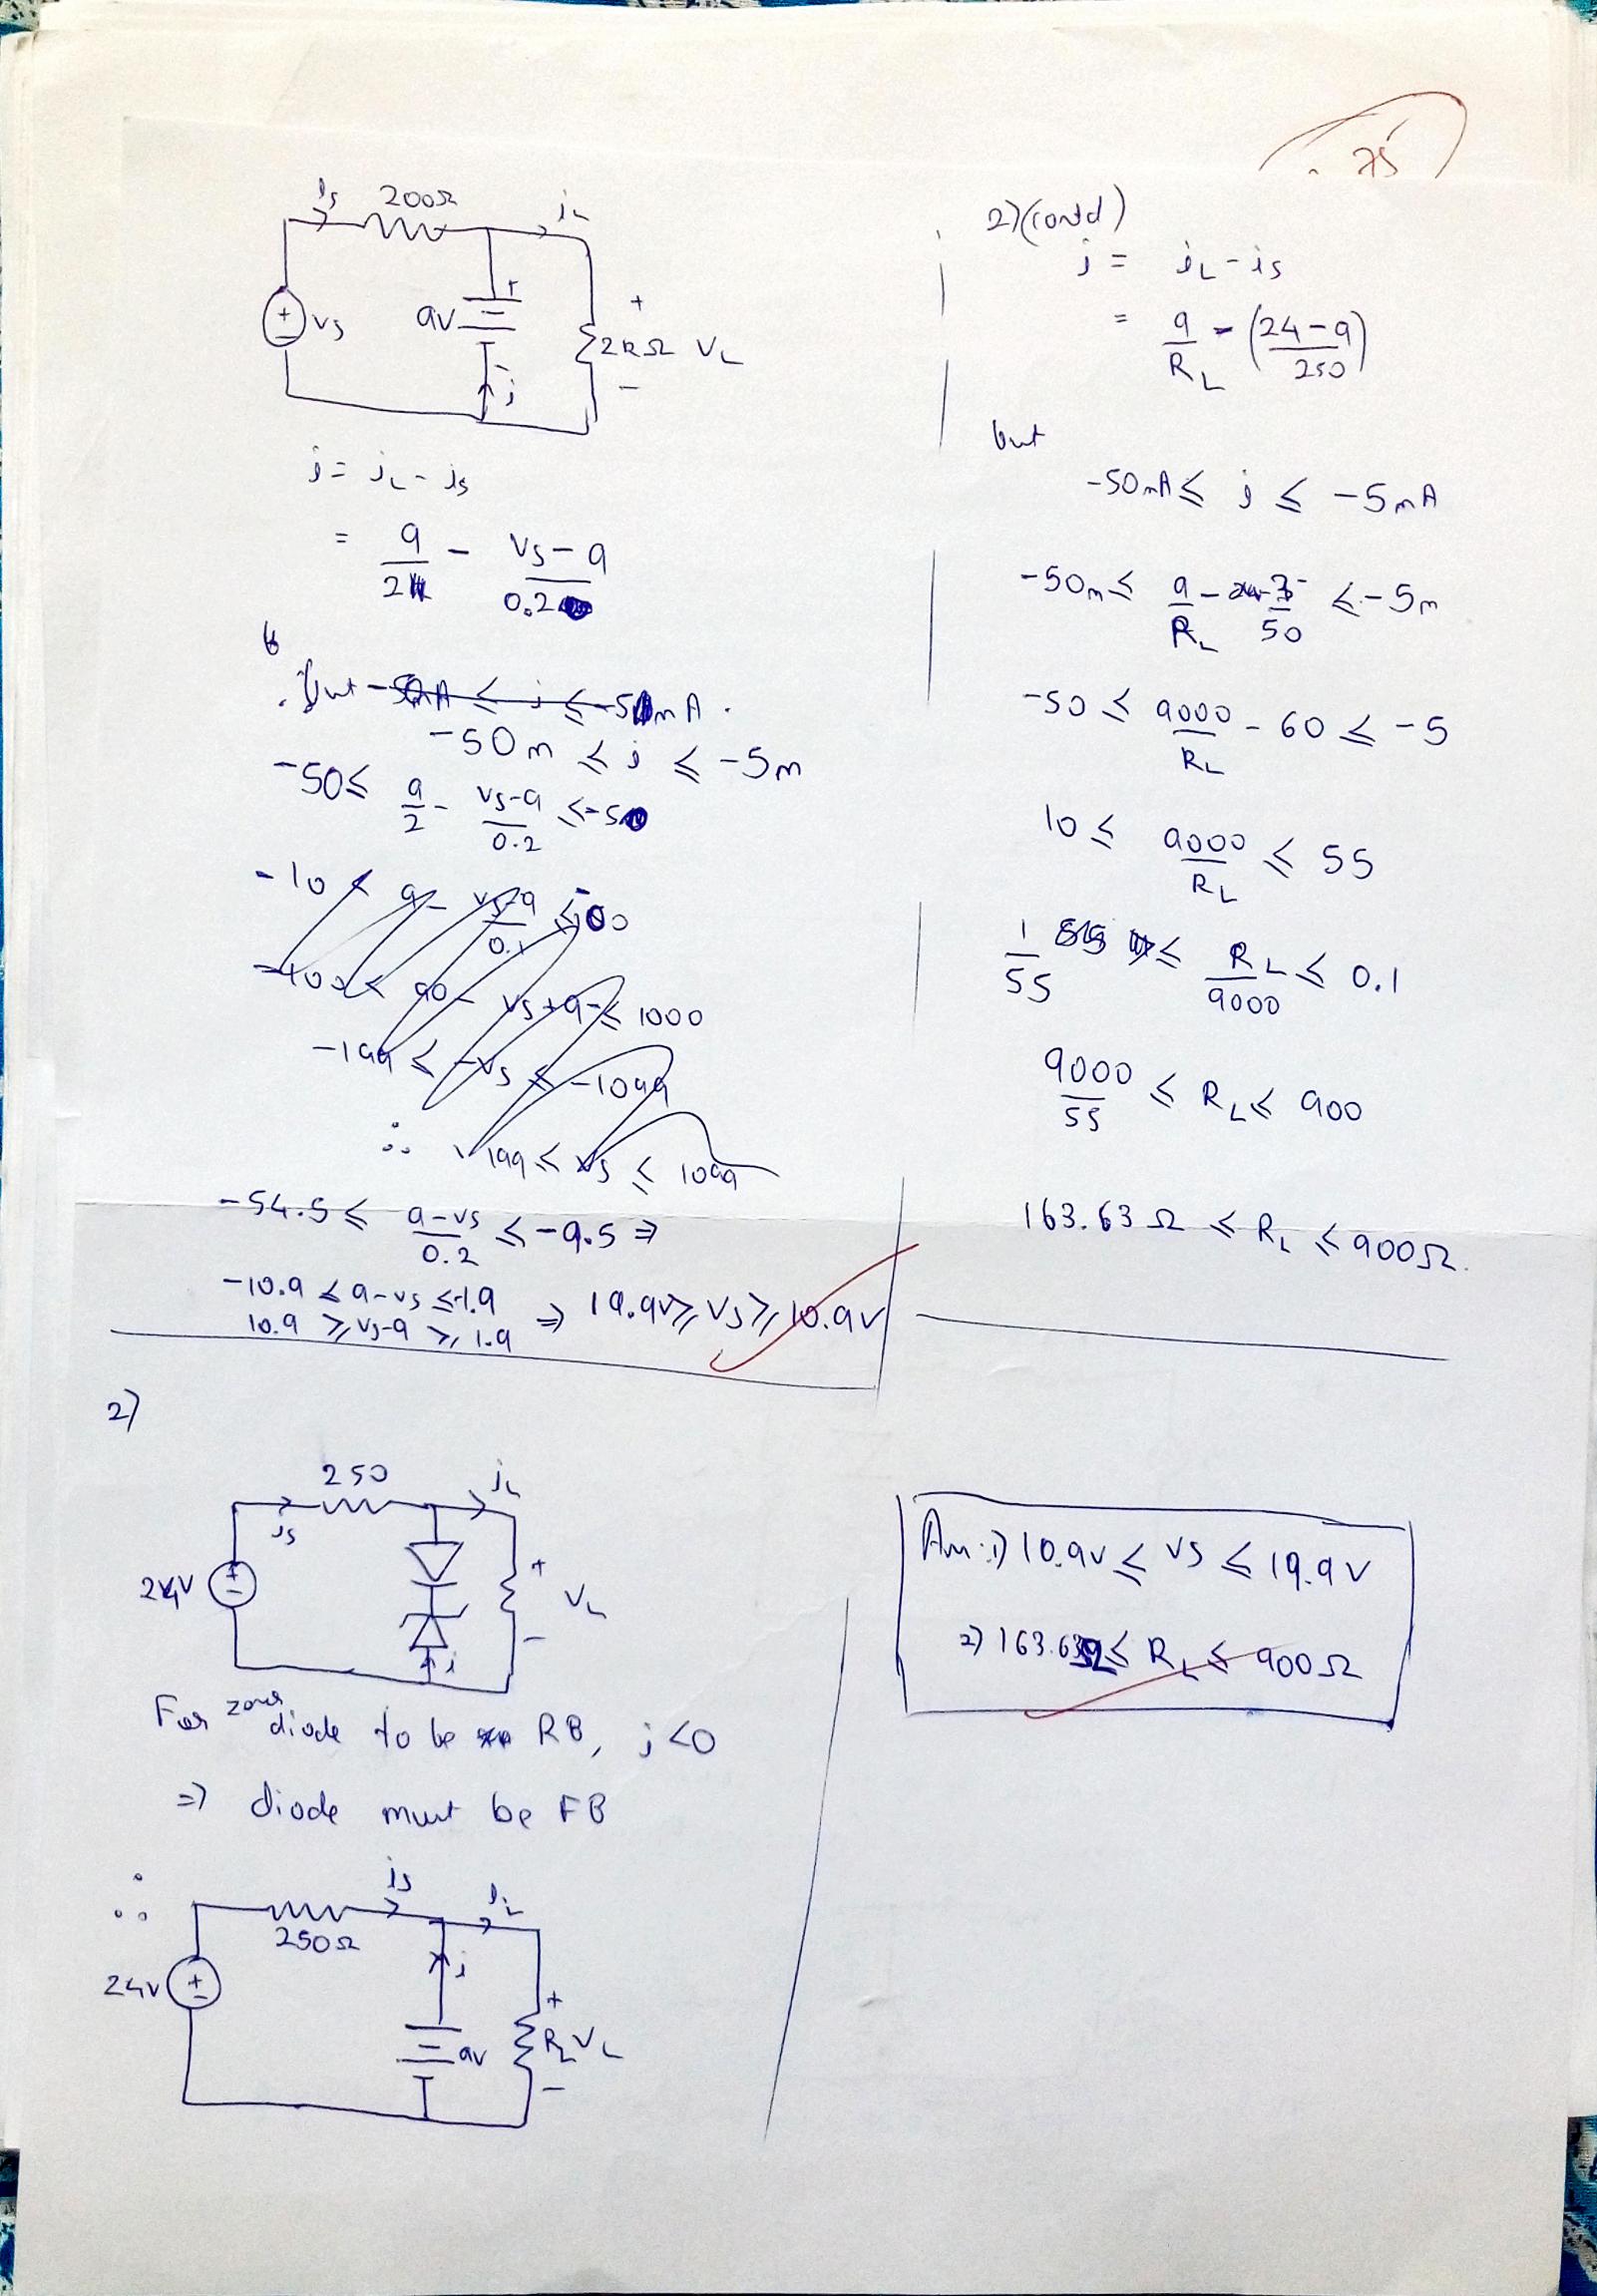 75
is 200Ω iL
+
vs
9V
+
-
i
2kΩ
+
VL
-
i = iL - is
= 9/2 - (vs-9)/0.2
But
-50m ≤ i ≤ -5m
-50 ≤ 9/2 - (vs-9)/0.2 ≤ -5
-199 ≤ -vs ≤ -1099
∴ 199 ≤ vs ≤ 1099
-54.5 ≤ (9-vs)/0.2 ≤ -9.5 ⇒
-10.9 ≤ 9-vs ≤ -1.9
10.9 ≥ vs-9 ≥ 1.9 ⇒ 19.9V ≥ vs ≥ 10.9V
2)
250 iL
is
24V
+
-
i
+
VL
-
For zener diode to be RB, i<0
⇒ diode must be FB
∴
is iL
250Ω
24V
+
-
i
9V
+
RL VL
-
2)(contd)
i = iL - is
= 9/RL - (24-9)/250
but
-50mA ≤ i ≤ -5mA
-50m ≤ 9/RL - 3/50 ≤ -5m
-50 ≤ 9000/RL - 60 ≤ -5
10 ≤ 9000/RL ≤ 55
1/55 ≤ RL/9000 ≤ 0.1
9000/55 ≤ RL ≤ 900
163.63Ω ≤ RL ≤ 900Ω.
Ans: 1) 10.9V ≤ vs ≤ 19.9V
2) 163.63Ω ≤ RL ≤ 900Ω